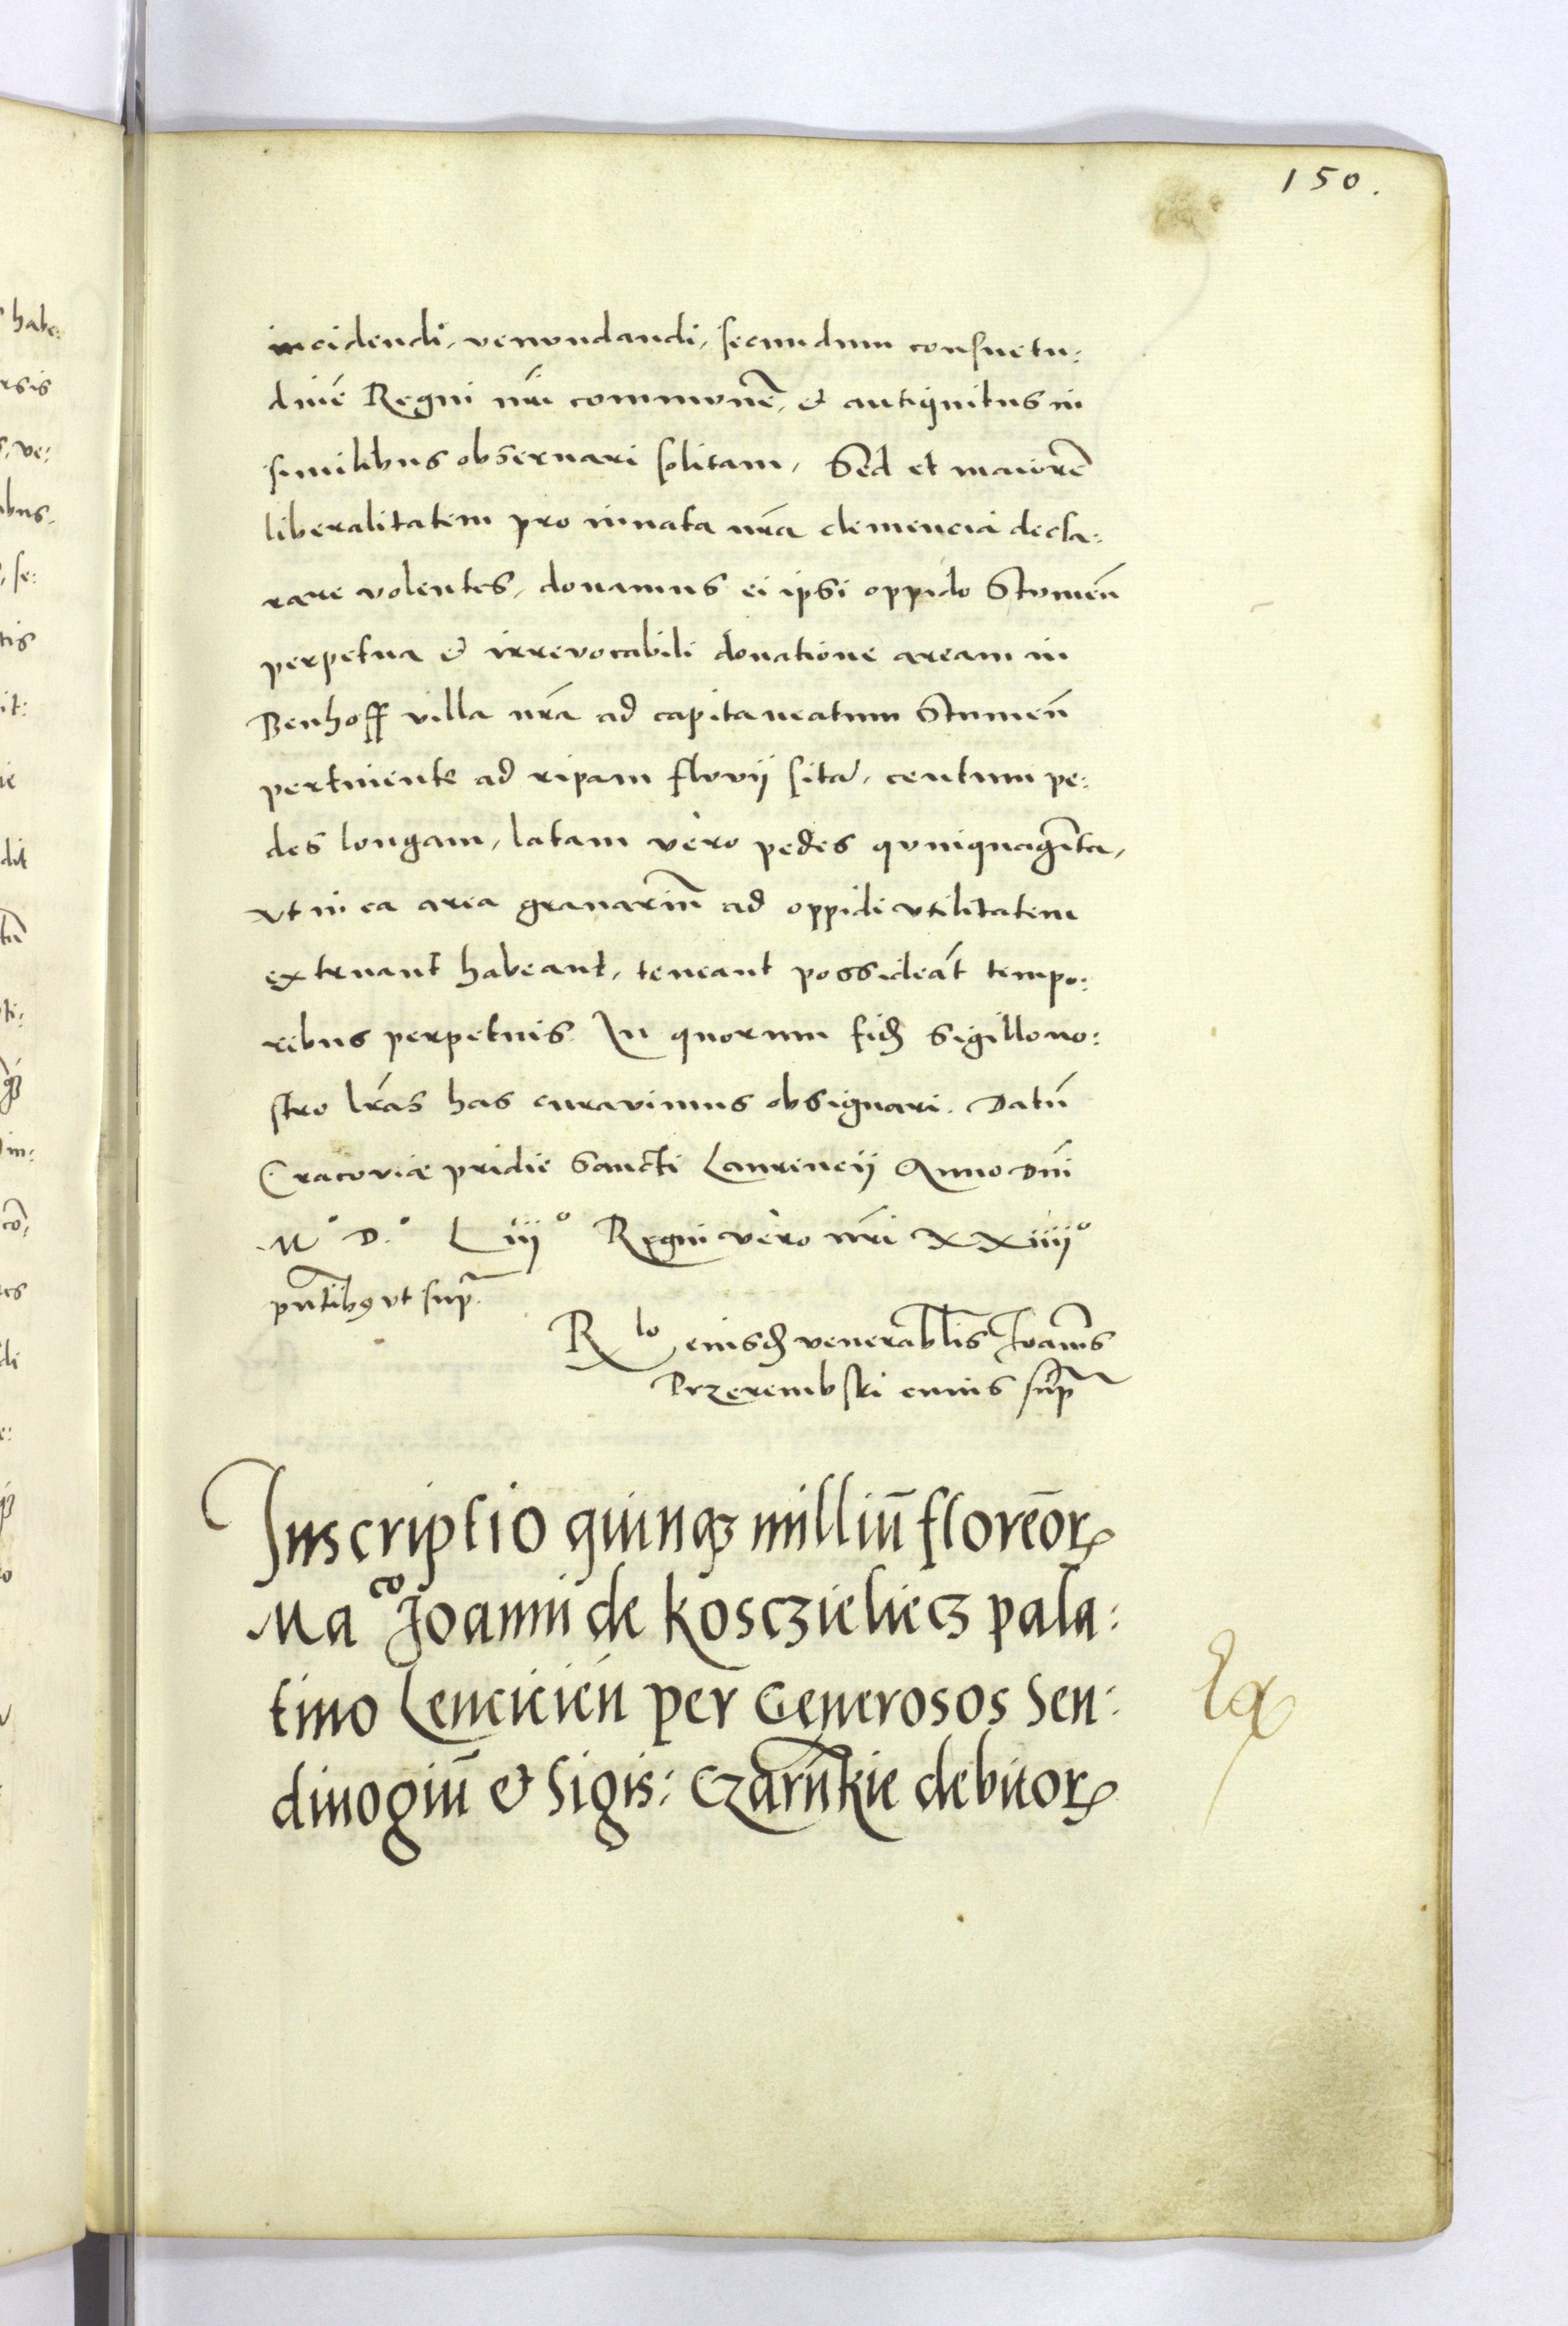 150.
incidendi, venundandi, secundum consuetu:
dinē Regni nr̄i communē, et antiquitus in
similibus observari solitam, Sed et maiorē
liberalitatem pro innata nr̄a clemencia decla:
rare volentes, donamus ei ipsi oppido Stumeñ
perpetua et irrevocabili donatione aream in
Benhoff villa nr̄a ad capitaneatum Stumeñ
pertinente ad ripam fluvij sitā, centum pe:
des longam, latam vero pedes quinquagīta,
Vt in ea area granariū ad oppidi vtilitatem
extruant habeant, teneant possideāt tempo:
ribus perpetuis. In quorum fidē sigillo no:
stro lr̄as has curavimus obsignari. Datū
Cracoviæ pridie Sancti Laurencij Anno Dn̄i
M° D.° Liij° Regni vero nr̄i XXiiij°
pn̄tibus vt supr̄.
R lo eiusdē venerablīs Ioannīs
Przerembski cuius supr̄
Inscriptio quinq3 milliū floreor̄ꝝ
Ma co Joanni de Kosczieliecz pala:
tino Lencicień per Generosos Sen:
divogiū et Sigis: Czarn̄kie debitorꝝ
Ex